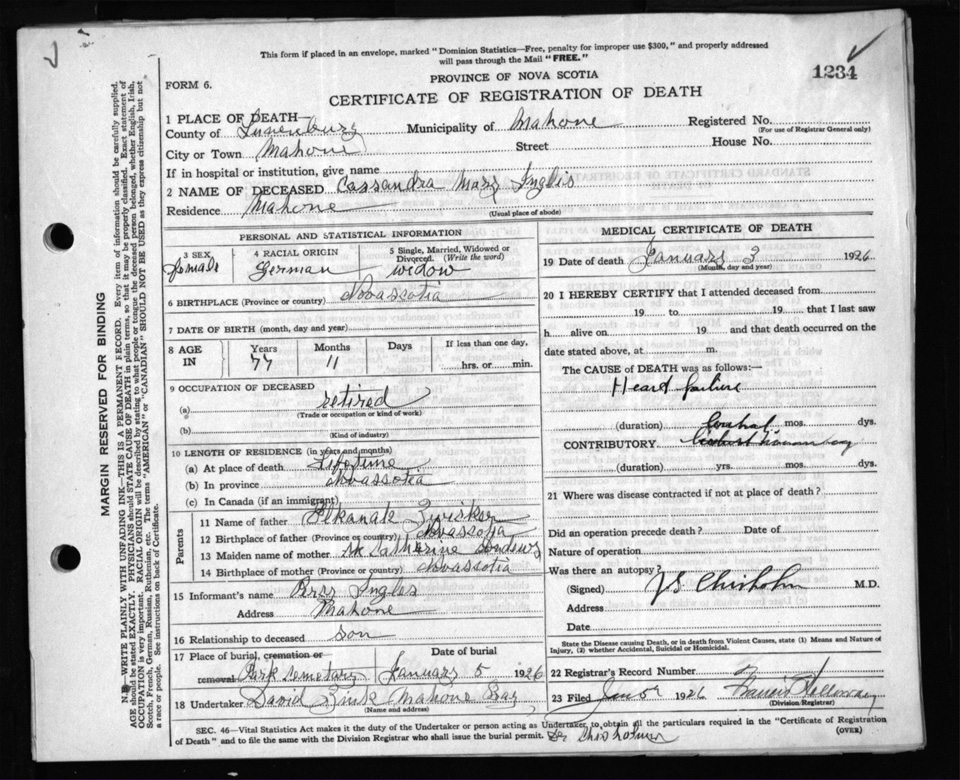 This form if placed in an envelope, marked "Dominion Statistics—Free, penalty for improper use $300," and properly addressed
will pass through the Mail "FREE."
1234
PROVINCE OF NOVA SCOTIA
FORM 6.
CERTIFICATE OF REGISTRATION OF DEATH
1 PLACE OF DEATH—
County of Lunenburg Municipality of Mahone Registered No.
(For use of Registrar General only)
City or Town Mahone Street House No.
If in hospital or institution, give name
2 NAME OF DECEASED Cassandra Mary Inglis
Residence Mahone
(Usual place of abode)
PERSONAL AND STATISTICAL INFORMATION
3 SEX female
4 RACIAL ORIGIN German
5 Single, Married, Widowed or Divorced. (Write the word) widow
6 BIRTHPLACE (Province or country) Novascotia
7 DATE OF BIRTH (month, day and year)
8 AGE IN Years 77 Months 11 Days If less than one day, hrs. or min.
9 OCCUPATION OF DECEASED
(a) retired
(Trade or occupation or kind of work)
(b)
(Kind of industry)
10 LENGTH OF RESIDENCE (in years and months)
(a) At place of death Lifetime
(b) In province Novascotia
(c) In Canada (if an immigrant)
Parents
11 Name of father Elkanah Zwicker
12 Birthplace of father (Province or country) Novascotia
13 Maiden name of mother Catherine
14 Birthplace of mother (Province or country) Novascotia
15 Informant's name Ingles
Address Mahone
16 Relationship to deceased son
17 Place of burial, cremation or removal Park Cemetary
Date of burial January 5 1926
18 Undertaker David Zink Mahone Bay
(Name and address)
MEDICAL CERTIFICATE OF DEATH
19 Date of death January 3 1926
(Month, day and year)
20 I HEREBY CERTIFY that I attended deceased from
19 to 19 that I last saw
h alive on 19 and that death occurred on the
date stated above, at m.
The CAUSE of DEATH was as follows:—
Heart failure
(duration) yrs. mos. dys.
CONTRIBUTORY.
(duration) yrs. mos. dys.
21 Where was disease contracted if not at place of death?
Did an operation precede death? Date of
Nature of operation
Was there an autopsy?
(Signed) Chisholm M.D.
Address
Date
State the Disease causing Death, or in death from Violent Causes, state (1) Means and Nature of
Injury, (2) whether Accidental, Suicidal or Homicidal.
22 Registrar's Record Number
23 Filed Jan 5th 1926
(Division Registrar)
SEC. 46—Vital Statistics Act makes it the duty of the Undertaker or person acting as Undertaker to obtain all the particulars required in the "Certificate of Registration
of Death" and to file the same with the Division Registrar who shall issue the burial permit. Dr Chisholm
(OVER)
MARGIN RESERVED FOR BINDING
N.B.—WRITE PLAINLY WITH UNFADING INK—THIS IS A PERMANENT RECORD. Every item of information should be carefully supplied.
AGE should be stated EXACTLY. PHYSICIANS should STATE CAUSE OF DEATH in plain terms, so that it may be properly classified. Exact statement of
OCCUPATION is very important. RACIAL ORIGIN will be described by stating to what people or tongue the deceased person belonged, whether English, Irish,
Scotch, French, German, Russian, Ruthenian, etc. The terms "AMERICAN" or "CANADIAN" SHOULD NOT BE USED as they express citizenship but not
a race or people. See instructions on back of Certificate.